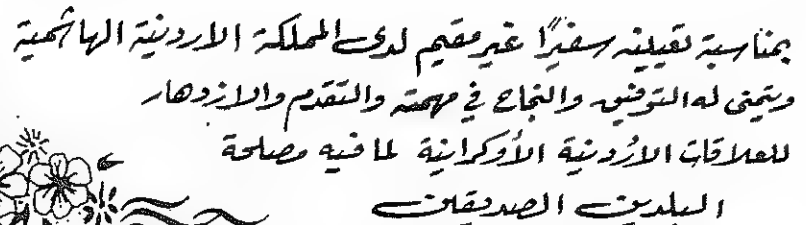 بمناسبة تعيينه سفيرًا غير مقيم لدى المملكة الاردنية الهاشمية
ويتمنى له التوفيق والنجاح في مهمته والتقدم والازدهار
للعلاقات الأردنية الأوكرانية لما فيه مصلحة
البلدين الصديقين